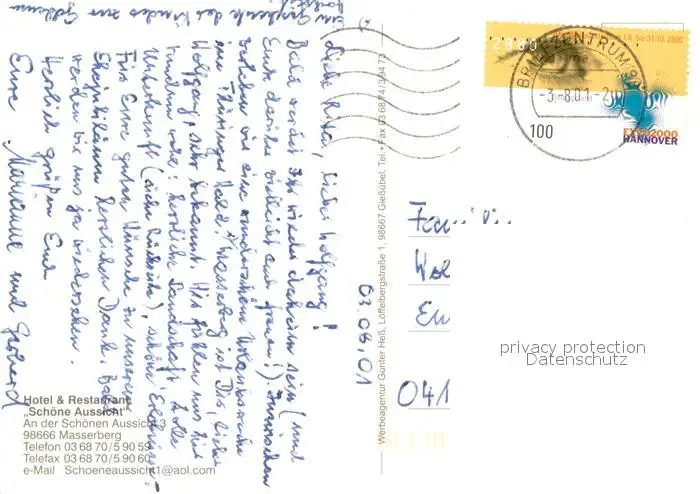 Liebe Rita, lieber Wolfgang!
Bald werdet Ihr wieder daheim sein (und
Euch darüber vielleicht auch freuen!) Inzwischen
verleben wir eine wunderschöne Urlaubswoche
im Thüringer Wald. Masserberg ist Dir, lieber
Wolfgang, sehr bekannt. Wir fühlen uns hier
rundum wohl: herrliche Landschaft, tolle
Unterkunft (siehe Rückseite), schöne Erlebnisse.
Für Eure guten Wünsche zu unserem
Ehejubiläum herzlichen Dank. Bald
werden wir uns ja wiedersehen.
Herzlich grüßen Euch
Eure Marianne und Gerhard
ein Geschenk der Kinder zur Goldenen
Hotel & Restaurant
„Schöne Aussicht"
An der Schönen Aussicht 3
98666 Masserberg
Telefon 03 68 70/5 90 59
Telefax 03 68 70/5 90 60
e-Mail Schoeneaussicht1@aol.com
Werbeagentur Gunter Heß, Löffelbergstraße 1, 98667 Gießübel, Tel.+Fax 03 68 74/3 94 73
03.08.01
BRIEFZENTRUM
-3.-8.01-2
100
bis 31.10.2000
EXPO2000
HANNOVER
Wol
041
privacy protection
Datenschutz